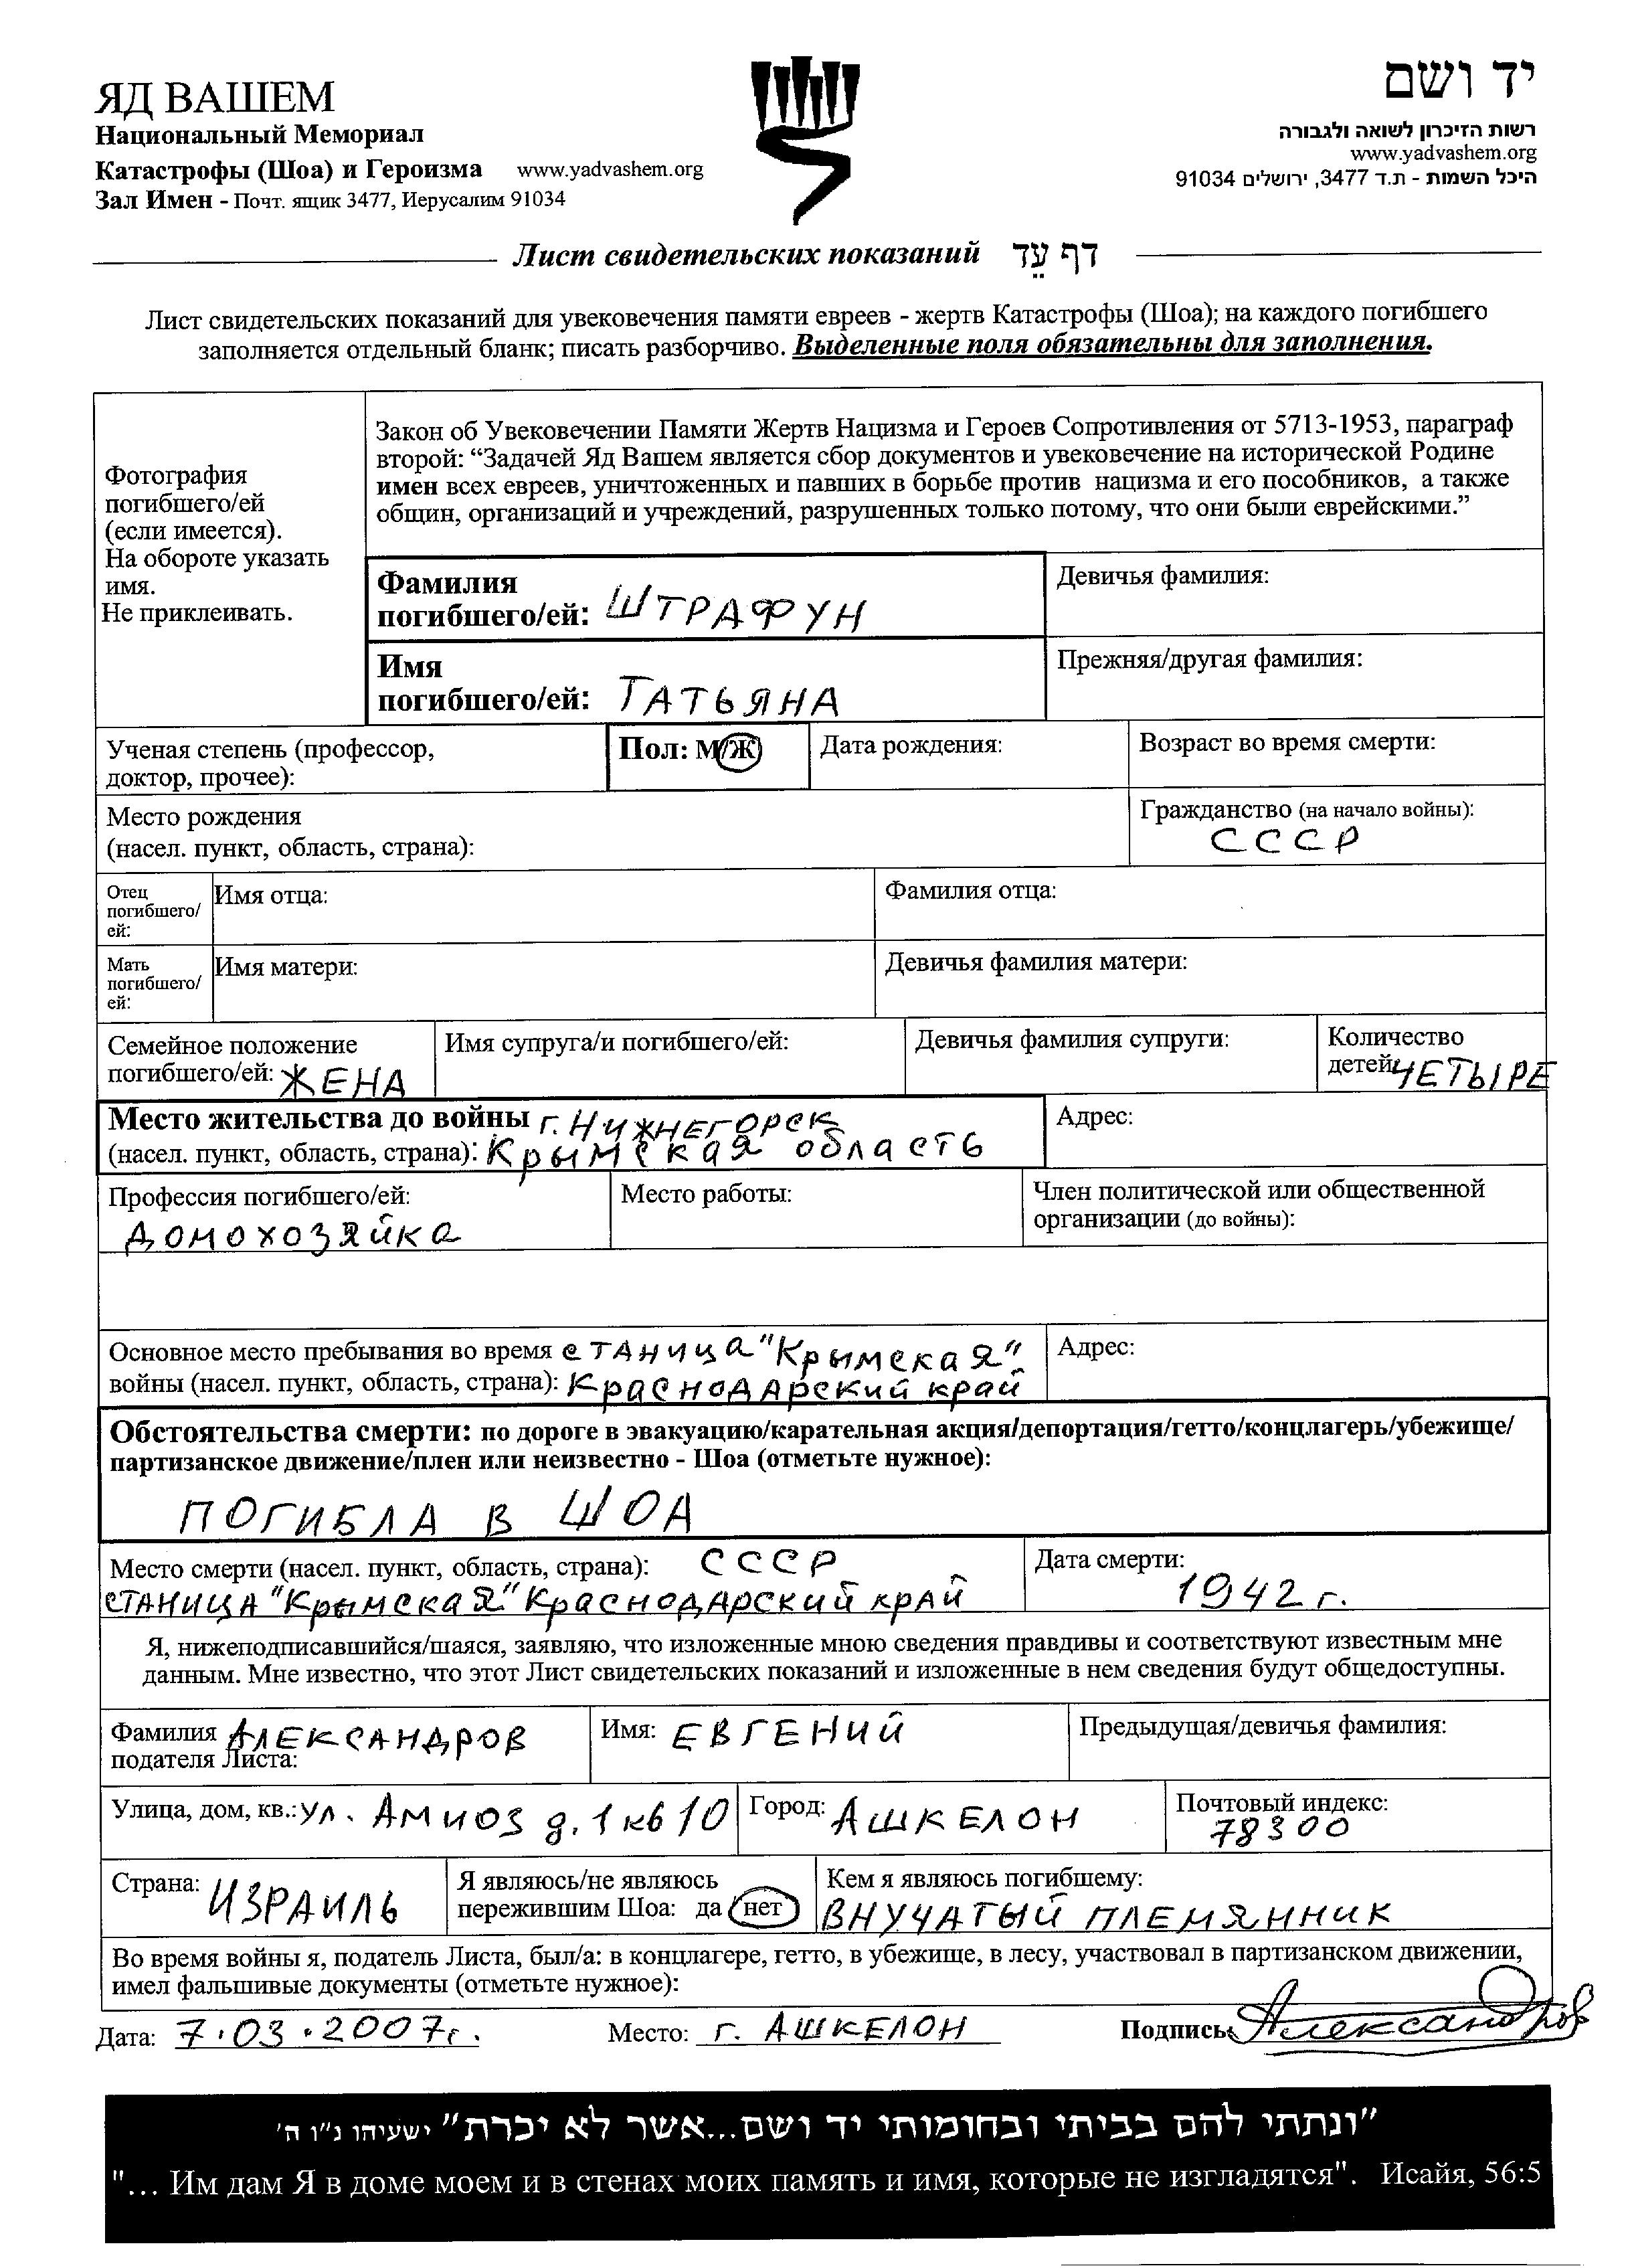 ЯД ВАШЕМ
Национальный Мемориал
Катастрофы (Шоа) и Героизма www.yadvashem.org
Зал Имен - Почт. ящик 3477, Иерусалим 91034
יד ושם
רשות הזיכרון לשואה ולגבורה
www.yadvashem.org
היכל השמות - ת.ד 3477, ירושלים 91034
Лист свидетельских показаний דף עֵד
Лист свидетельских показаний для увековечения памяти евреев - жертв Катастрофы (Шоа); на каждого погибшего
заполняется отдельный бланк; писать разборчиво. Выделенные поля обязательны для заполнения.
Фотография
погибшего/ей
(если имеется).
На обороте указать
имя.
Не приклеивать.
Закон об Увековечении Памяти Жертв Нацизма и Героев Сопротивления от 5713-1953, параграф
второй: “Задачей Яд Вашем является сбор документов и увековечение на исторической Родине
имен всех евреев, уничтоженных и павших в борьбе против нацизма и его пособников, а также
общин, организаций и учреждений, разрушенных только потому, что они были еврейскими.”
Фамилия
погибшего/ей: ШТРАФУН
Девичья фамилия:
Имя
погибшего/ей: ТАТЬЯНА
Прежняя/другая фамилия:
Ученая степень (профессор,
доктор, прочее):
Пол: М/Ж
Дата рождения:
Возраст во время смерти:
Место рождения
(насел. пункт, область, страна):
Гражданство (на начало войны):
СССР
Отец
погибшего/
ей:
Имя отца:
Фамилия отца:
Мать
погибшего/
ей:
Имя матери:
Девичья фамилия матери:
Семейное положение
погибшего/ей: ЖЕНА
Имя супруга/и погибшего/ей:
Девичья фамилия супруги:
Количество
детей: ЧЕТЫРЕ
Место жительства до войны г. НИЖНЕГОРСК
(насел. пункт, область, страна): Крымская область
Адрес:
Профессия погибшего/ей:
домохозяйка
Место работы:
Член политической или общественной
организации (до войны):
Основное место пребывания во время станица "Крымская"
войны (насел. пункт, область, страна): Краснодарский край
Адрес:
Обстоятельства смерти: по дороге в эвакуацию/карательная акция/депортация/гетто/концлагерь/убежище/
партизанское движение/плен или неизвестно - Шоа (отметьте нужное):
ПОГИБЛА В ШОА
Место смерти (насел. пункт, область, страна): СССР
СТАНИЦА "Крымская" Краснодарский край
Дата смерти:
1942 г.
Я, нижеподписавшийся/шаяся, заявляю, что изложенные мною сведения правдивы и соответствуют известным мне
данным. Мне известно, что этот Лист свидетельских показаний и изложенные в нем сведения будут общедоступны.
Фамилия АЛЕКСАНДРОВ
подателя Листа:
Имя: ЕВГЕНИЙ
Предыдущая/девичья фамилия:
Улица, дом, кв.: ул. Амиоз д. 1 кв 10
Город: АШКЕЛОН
Почтовый индекс:
78300
Страна: ИЗРАИЛЬ
Я являюсь/не являюсь
пережившим Шоа: да /нет
Кем я являюсь погибшему:
ВНУЧАТЫЙ ПЛЕМЯННИК
Во время войны я, податель Листа, был/а: в концлагере, гетто, в убежище, в лесу, участвовал в партизанском движении,
имел фальшивые документы (отметьте нужное):
Дата: 7.03.2007г. Место: г. АШКЕЛОН Подпись: Александров
"ונתתי להם בביתי ובחומותי יד ושם...אשר לא יכרת" ישעיהו נ"ו ה'
"... Им дам Я в доме моем и в стенах моих память и имя, которые не изгладятся". Исайя, 56:5